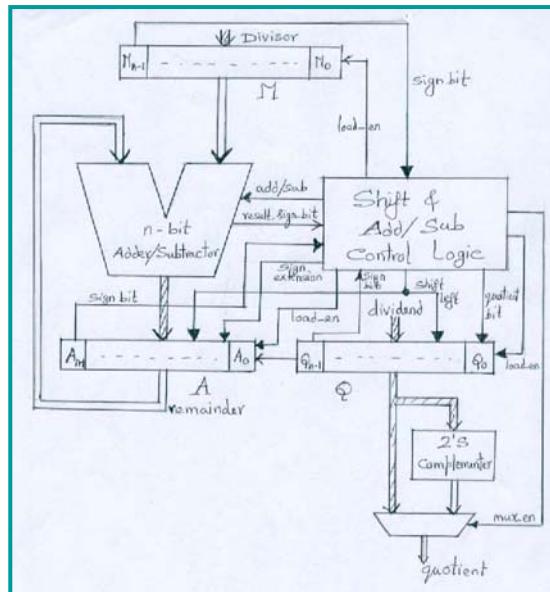 Divisor
Mn-1 M0
M
sign bit
load_en
add/sub
result sign bit
n-bit
Adder/Subtractor
Shift &
Add/Sub
Control Logic
sign bit
sign
extension
sign
bit
shift
left
quotient
bit
load_en
dividend
load_en
A0
Qn-1 Q0
A
Q
remainder
2's
Complementer
mux_en
quotient